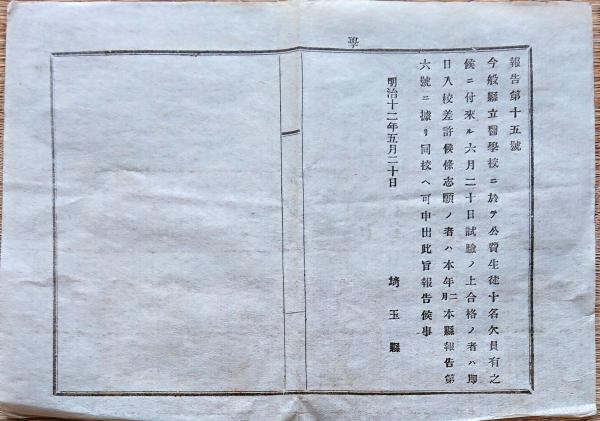 學
報告第十五號
今般縣立醫學校ニ於テ公費生徒十名欠員有之
候ニ付來ル六月二十日試驗ノ上合格ノ者ハ即
日入校差許候條志願ノ者ハ本年二月本縣報告第
六號ニ據リ同校ヘ可申出此旨報告候事
明治十二年五月二十日
埼玉縣